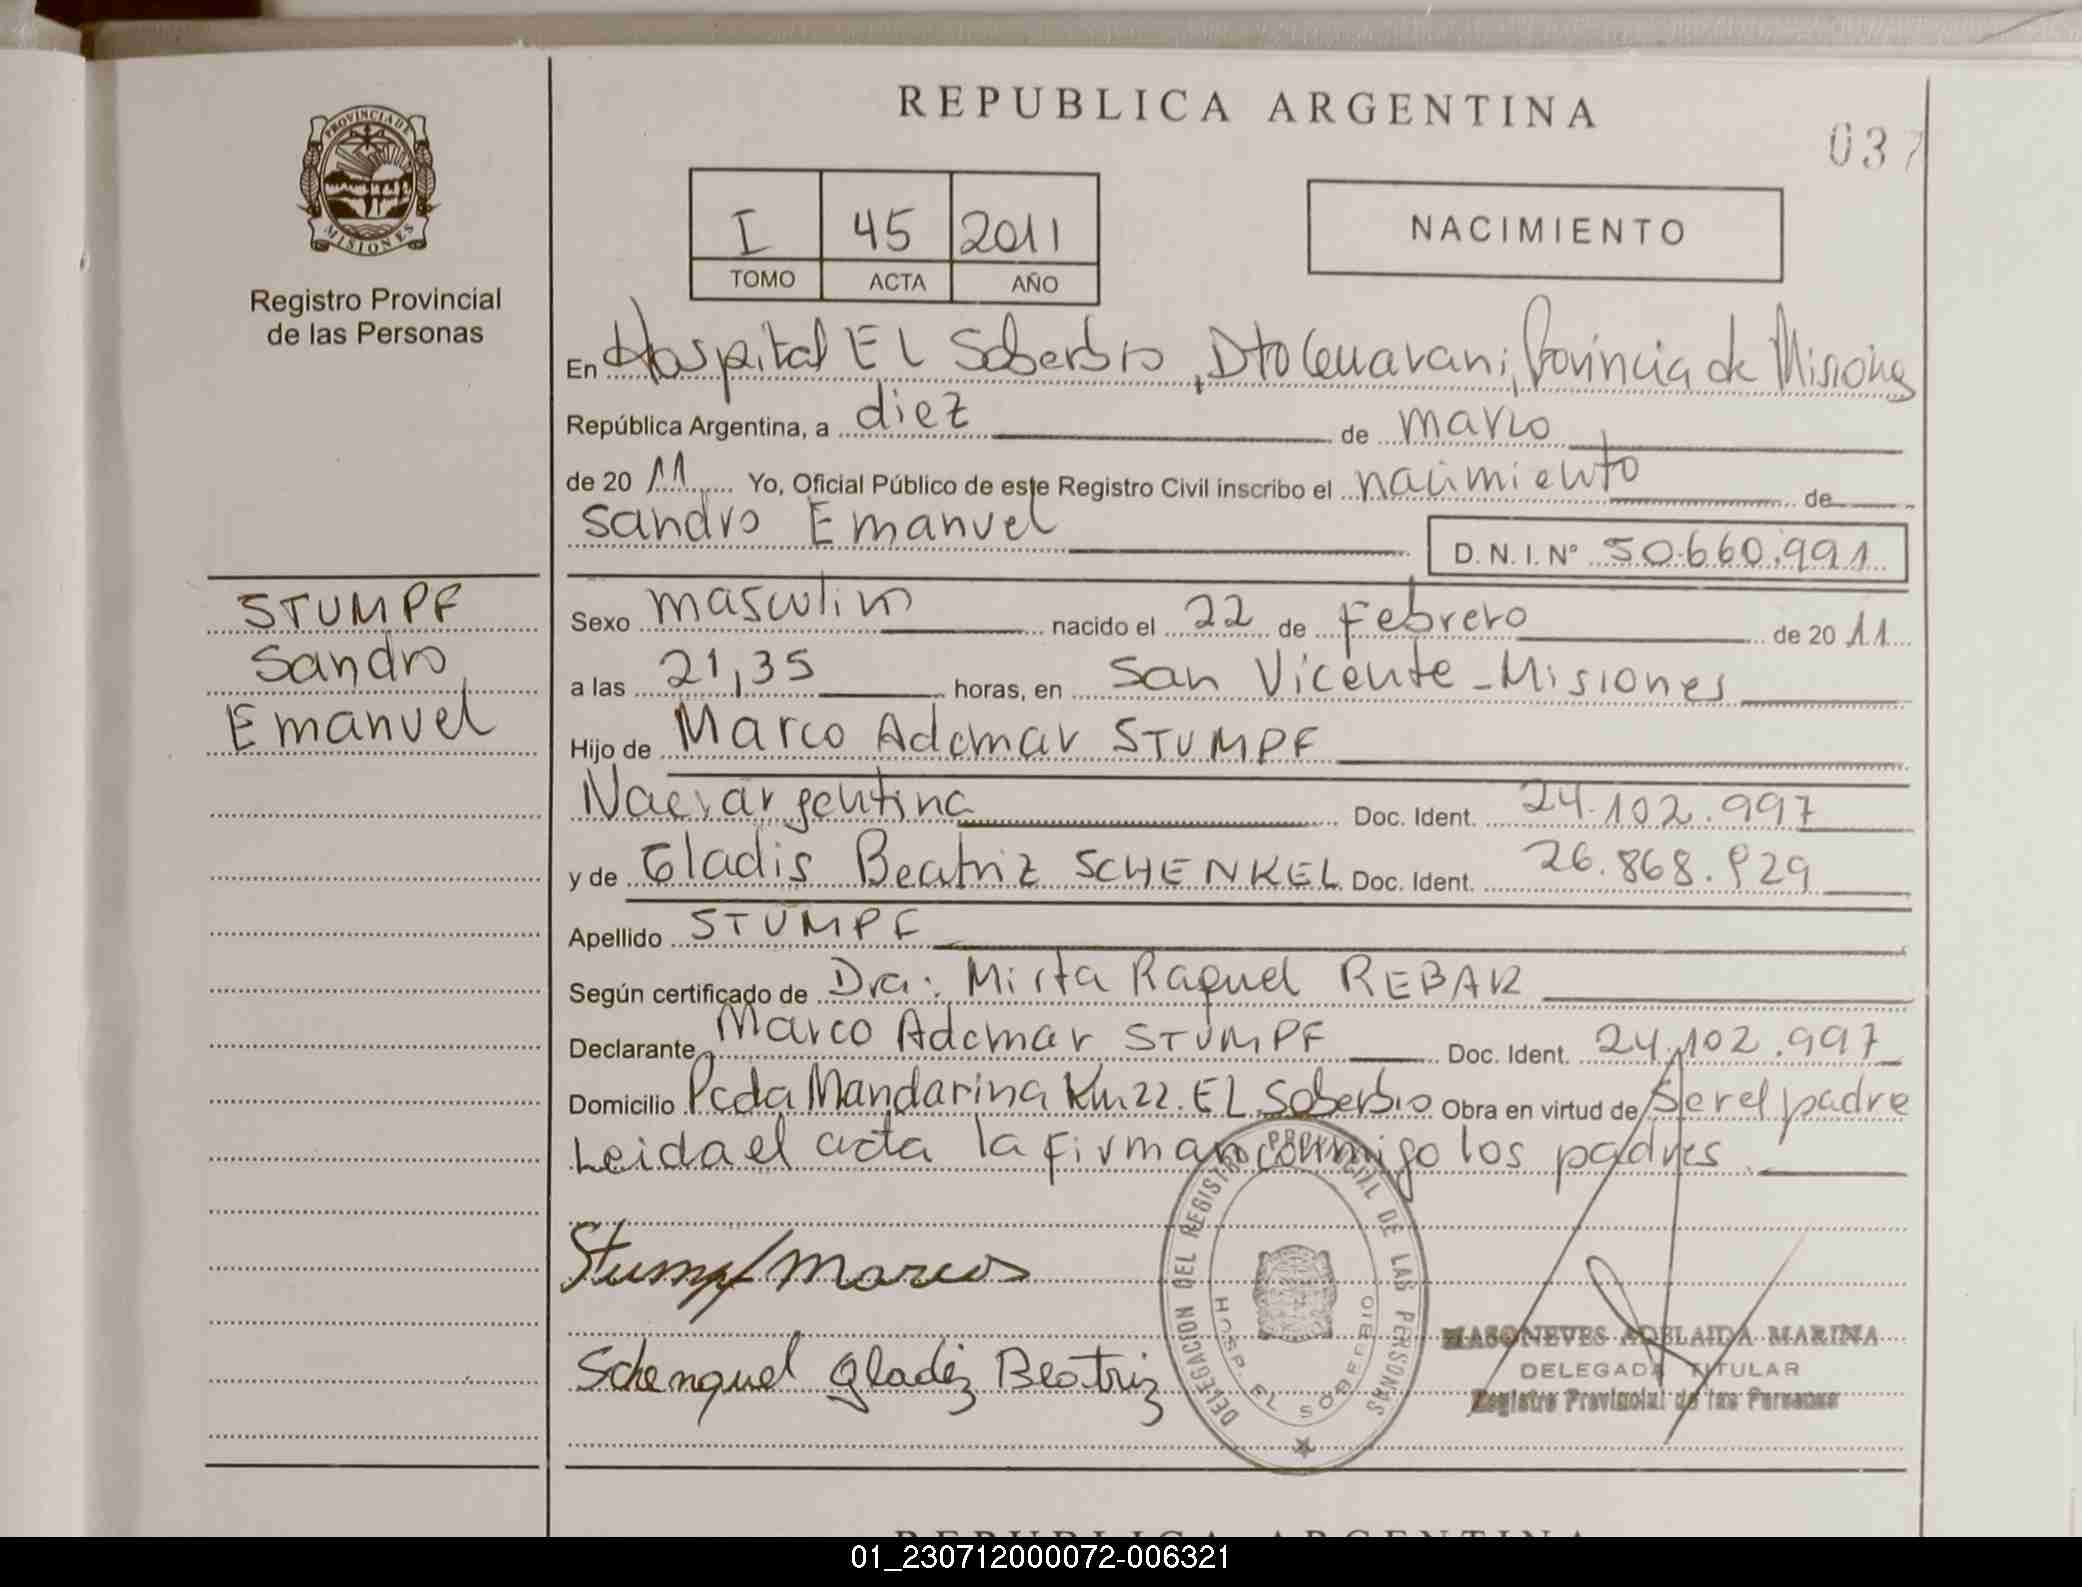 REPUBLICA ARGENTINA
037
PROVINCIA DE
MISIONES
Registro Provincial
de las Personas
I 45 2011
TOMO ACTA AÑO
NACIMIENTO
En Hospital EL Soberbio, Dto Guarani, Provincia de Misiones
República Argentina, a diez de marzo
de 20 11 Yo, Oficial Público de este Registro Civil inscribo el nacimiento de
Sandro Emanuel
D.N.I. Nº 50.660.991
STUMPF
Sandro
Emanuel
Sexo masculino nacido el 22 de Febrero de 20 11
a las 21,35 horas, en San Vicente - Misiones
Hijo de Marco Ademar STUMPF
Nac. argentina Doc. Ident. 24.102.997
y de Gladis Beatriz SCHENKEL Doc. Ident. 26.868.929
Apellido STUMPF
Según certificado de Dra. Mirta Raquel REBAK
Declarante Marco Ademar STUMPF Doc. Ident. 24.102.997
Domicilio Pcda Mandarina Km 22. EL Soberbio Obra en virtud de Ser el padre
Leida el acta la firman conmigo los padres
Stumpf Marcos
Schenquel Gladiz Beatriz
DELEGACION DEL REGISTRO PROVINCIAL DE LAS PERSONAS
HOSP. EL SOBERBIO
MASONEVES ADELAIDA MARINA
DELEGADA TITULAR
Registro Provincial de las Personas
REPUBLICA ARGENTINA
01_230712000072-006321